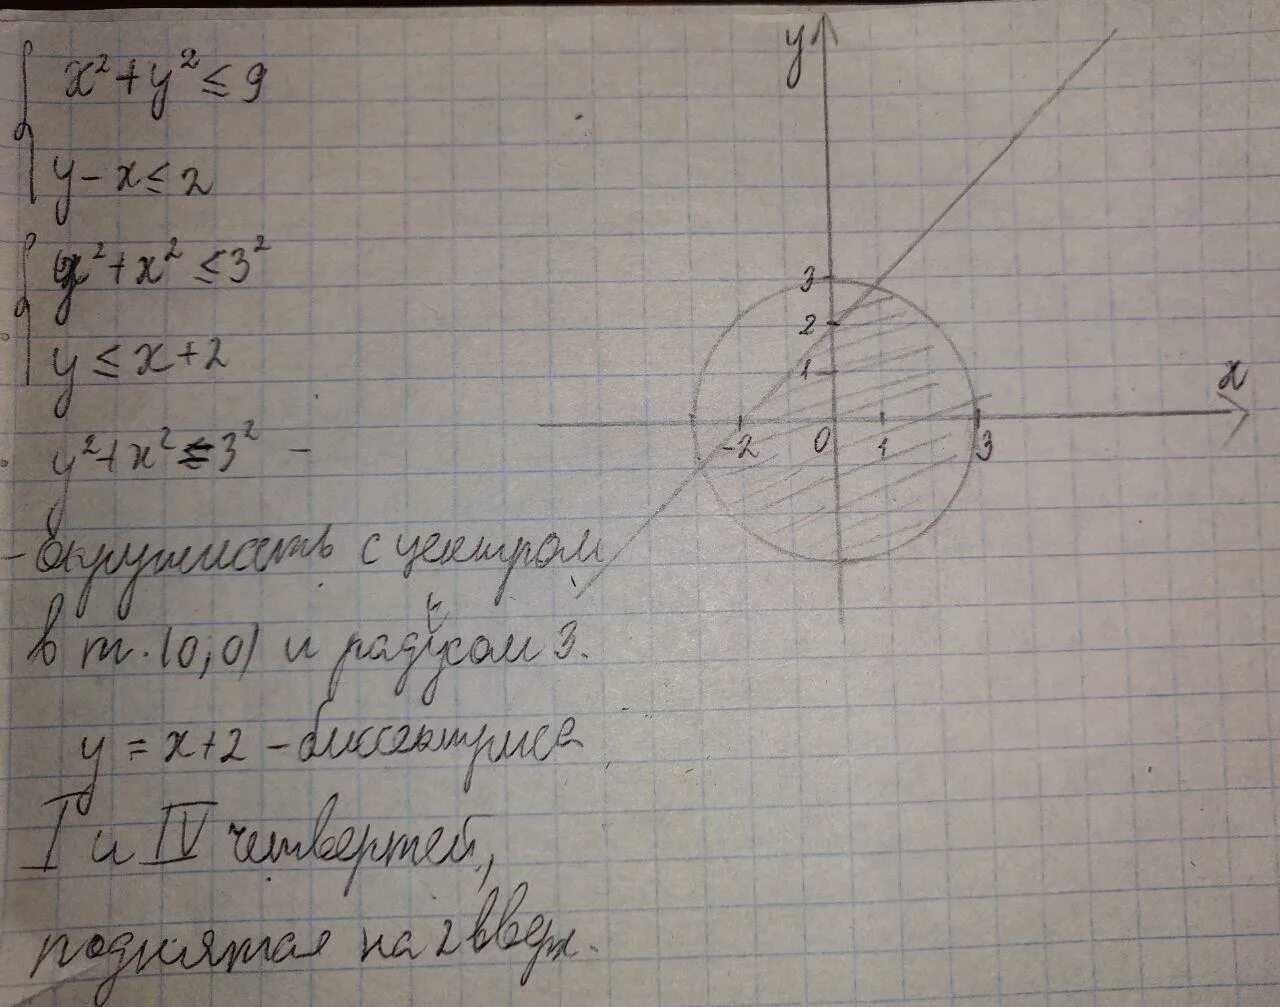 x² + y² ≤ 9
y - x ≤ 2
y² + x² ≤ 3²
y ≤ x + 2
y² + x² ≤ 3² -
- Окружность с центром
в т. (0; 0) и радиусом 3.
y = x + 2 - биссектриса
I и IV четвертей,
поднятая на 2 вверх.
y
3
2
1
x
-2
0
1
3